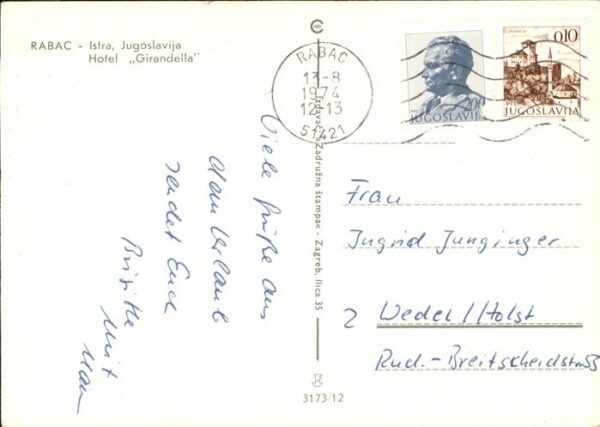 RABAC - Istra, Jugoslavija
Hotel „Girandella"
Viele Grüße aus
dem Urlaub
sendet Euch
Brigitte
mit
RABAC
13-8
1974
12-13
51421
200
JUGOSLAVIJA
GRADAČAC
0,10
JUGOSLAVIJA
Izdavač: Zadružna štampa - Zagreb, Ilica 35
3173/12
Frau
Ingrid Junginger
2 Wedel/Holst
Rud.-Breitscheidstr.